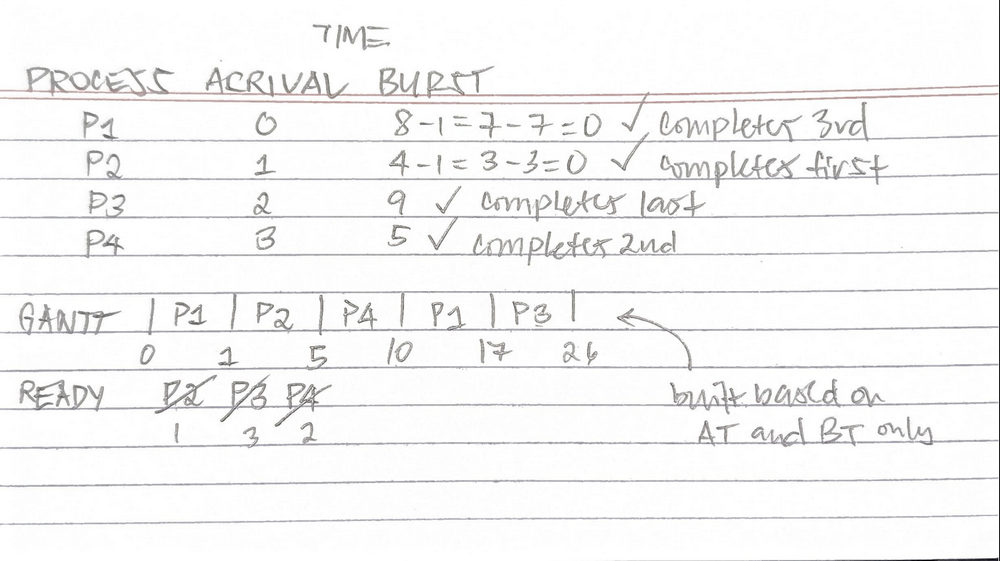 TIME
PROCESS ACRIVAL BURST
P1 0 8-1=7-7=0 ✓ completes 3rd
P2 1 4-1=3-3=0 ✓ completes first
P3 2 9 ✓ completes last
P4 3 5 ✓ completes 2nd
GANTT | P1 | P2 | P4 | P1 | P3 |
0 1 5 10 17 26
READY P2 P3 P4 built based on
1 3 2 AT and BT only